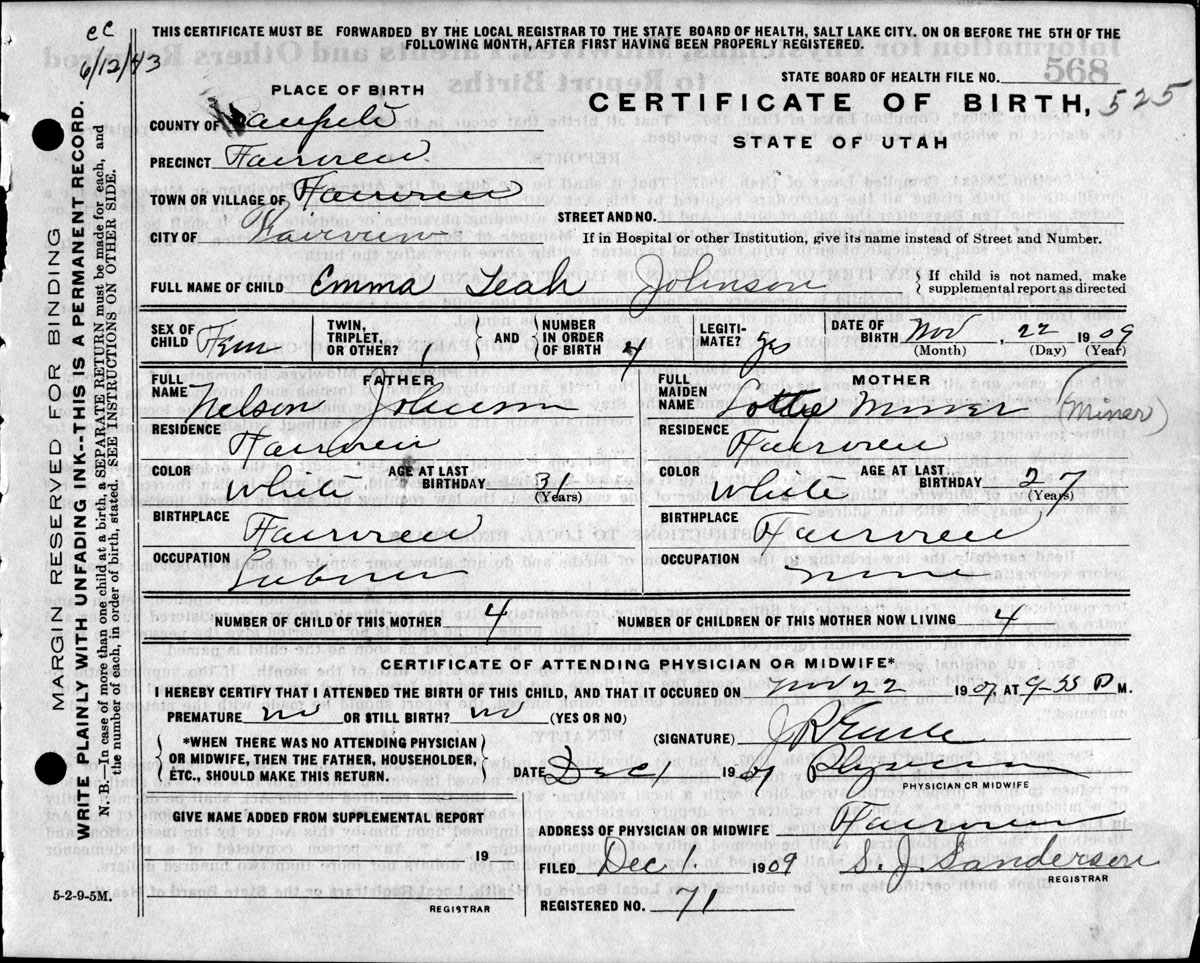 cc
6/12/43
THIS CERTIFICATE MUST BE FORWARDED BY THE LOCAL REGISTRAR TO THE STATE BOARD OF HEALTH, SALT LAKE CITY. ON OR BEFORE THE 5TH OF THE
FOLLOWING MONTH, AFTER FIRST HAVING BEEN PROPERLY REGISTERED.
STATE BOARD OF HEALTH FILE NO. 568
PLACE OF BIRTH
CERTIFICATE OF BIRTH, 525
STATE OF UTAH
COUNTY OF Sanpete
PRECINCT Fairview
TOWN OR VILLAGE OF Fairview
STREET AND NO.
CITY OF Fairview
If in Hospital or other Institution, give its name instead of Street and Number.
FULL NAME OF CHILD Emma Leah Johnson
If child is not named, make
supplemental report as directed
SEX OF CHILD Fem
TWIN, TRIPLET, OR OTHER? 1
AND
NUMBER IN ORDER OF BIRTH 4
LEGITIMATE? yes
DATE OF BIRTH Nov, 22 1909
(Month) (Day) (Year)
FATHER
FULL NAME Nelson Johnson
RESIDENCE Fairview
COLOR White
AGE AT LAST BIRTHDAY 31
(Years)
BIRTHPLACE Fairview
OCCUPATION
MOTHER
FULL MAIDEN NAME Lottie Miner (Miner)
RESIDENCE Fairview
COLOR White
AGE AT LAST BIRTHDAY 27
(Years)
BIRTHPLACE Fairview
OCCUPATION
NUMBER OF CHILD OF THIS MOTHER 4
NUMBER OF CHILDREN OF THIS MOTHER NOW LIVING 4
CERTIFICATE OF ATTENDING PHYSICIAN OR MIDWIFE*
I HEREBY CERTIFY THAT I ATTENDED THE BIRTH OF THIS CHILD, AND THAT IT OCCURED ON Nov 22 1909, AT 9-35 P M.
PREMATURE no OR STILL BIRTH? no (YES OR NO)
*WHEN THERE WAS NO ATTENDING PHYSICIAN
OR MIDWIFE, THEN THE FATHER, HOUSEHOLDER,
ETC., SHOULD MAKE THIS RETURN.
(SIGNATURE)
DATE Dec 1 1909 Physician
PHYSICIAN OR MIDWIFE
GIVE NAME ADDED FROM SUPPLEMENTAL REPORT
19
REGISTRAR
ADDRESS OF PHYSICIAN OR MIDWIFE Fairview
FILED Dec 1. 1909 S. J. Sanderson
REGISTRAR
REGISTERED NO. 71
5-2-9-5M.
MARGIN RESERVED FOR BINDING
WRITE PLAINLY WITH UNFADING INK--THIS IS A PERMANENT RECORD.
N. B.—In case of more than one child at a birth, a SEPARATE RETURN must be made for each, and
the number of each, in order of birth, stated. SEE INSTRUCTIONS ON OTHER SIDE.